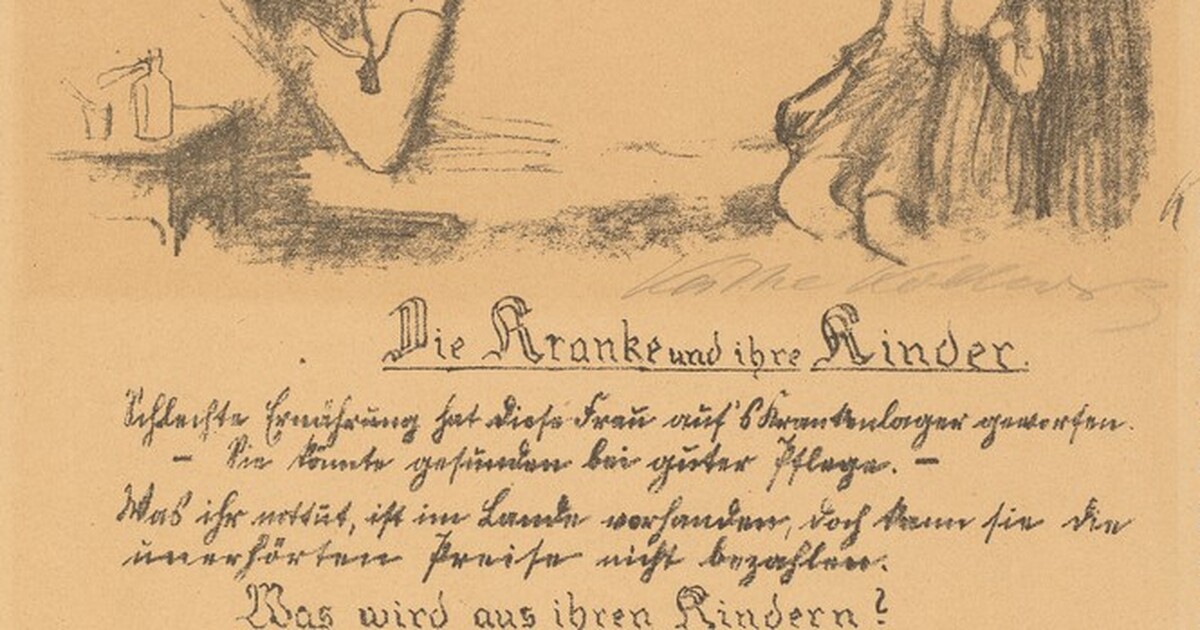 Käthe Kollwitz
Die Kranke und ihre Kinder.
Schlechte Ernährung hat diese Frau auf's Krankenlager geworfen.
– Sie könnte gesunden bei guter Pflege. –
Was ihr nottut, ist im Lande vorhanden, doch kann sie die
unerhörten Preise nicht bezahlen.
Was wird aus ihren Kindern?